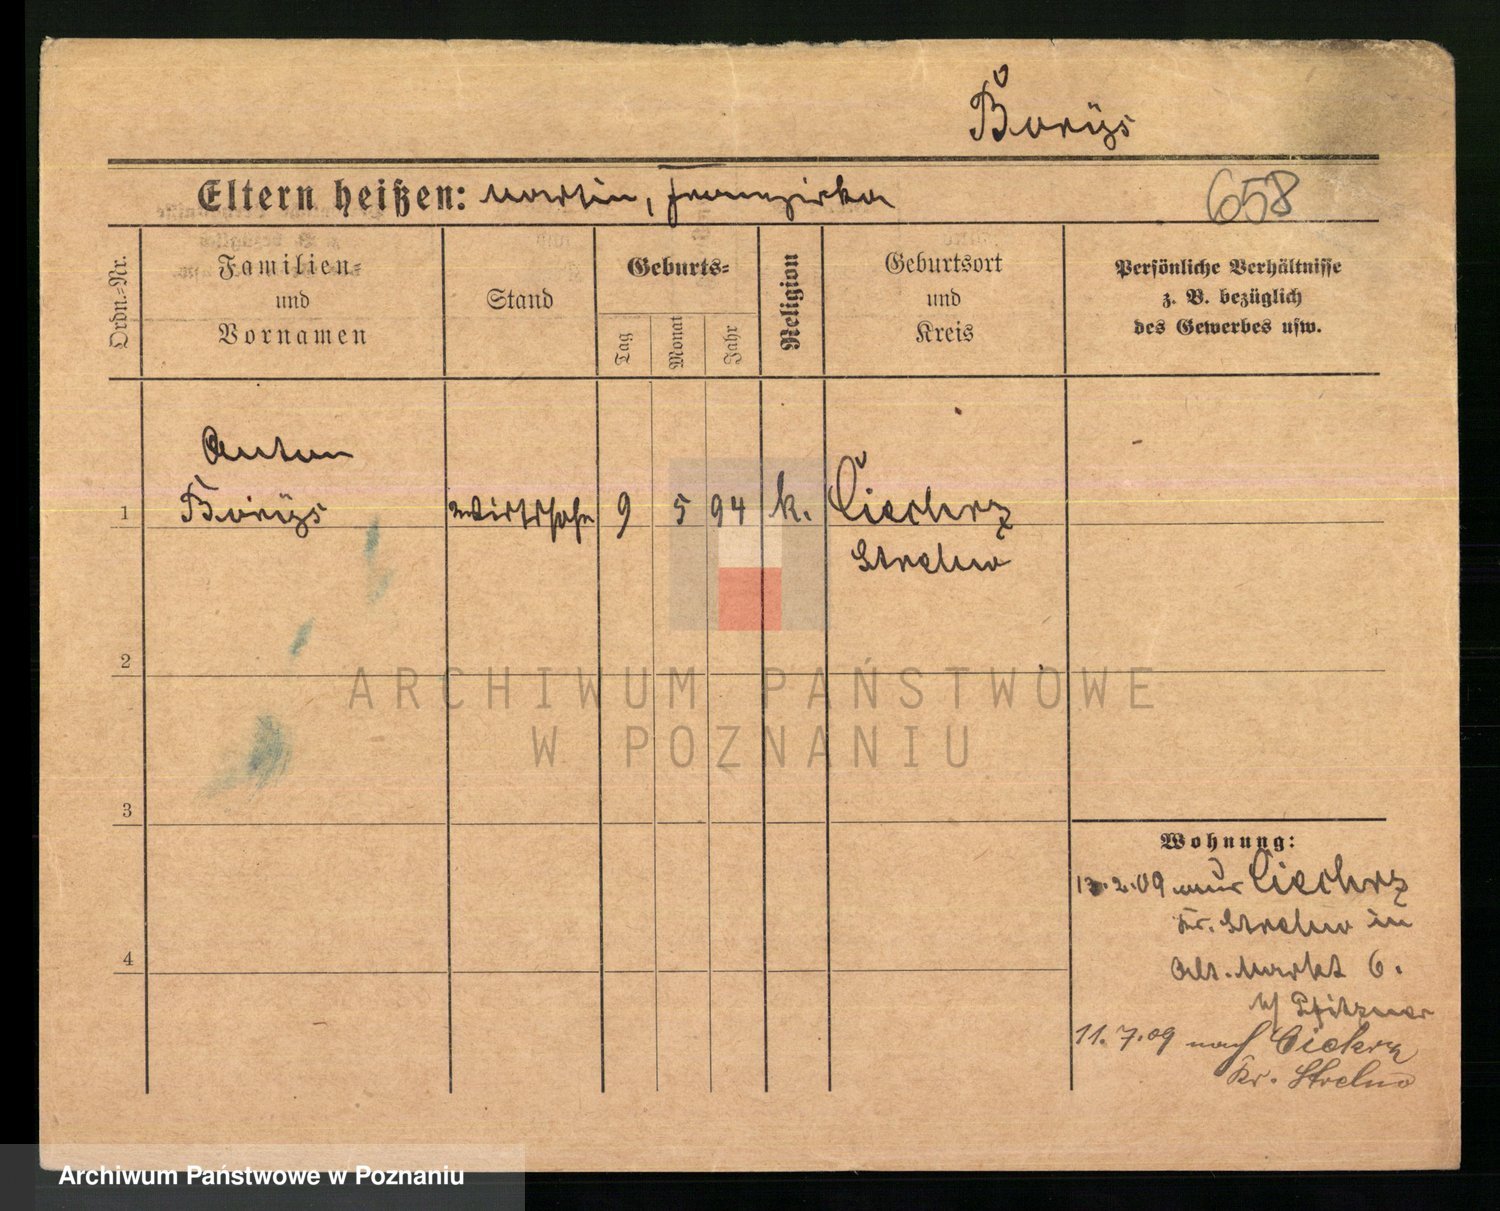 Borÿs
Eltern heißen: Martin, Franziska
658
Ordn.-Nr.
Familien-
und
Vornamen
Stand
Geburts-
Tag
Monat
Jahr
Religion
Geburtsort
und
Kreis
Persönliche Verhältnisse
z. B. bezüglich
des Gewerbes usw.
Anton
1 Borÿs Wirtssohn 9 5 94 k. Ciechrz
Strelno
2
ARCHIWUM PAŃSTWOWE
W POZNANIU
3
Wohnung:
2.09 aus Ciechrz
Kr. Strelno in
Alt. Markt 6.
b/ Pfitzner
4
11.7.09 nach Ciechrz
Kr. Strelno
Archiwum Państwowe w Poznaniu